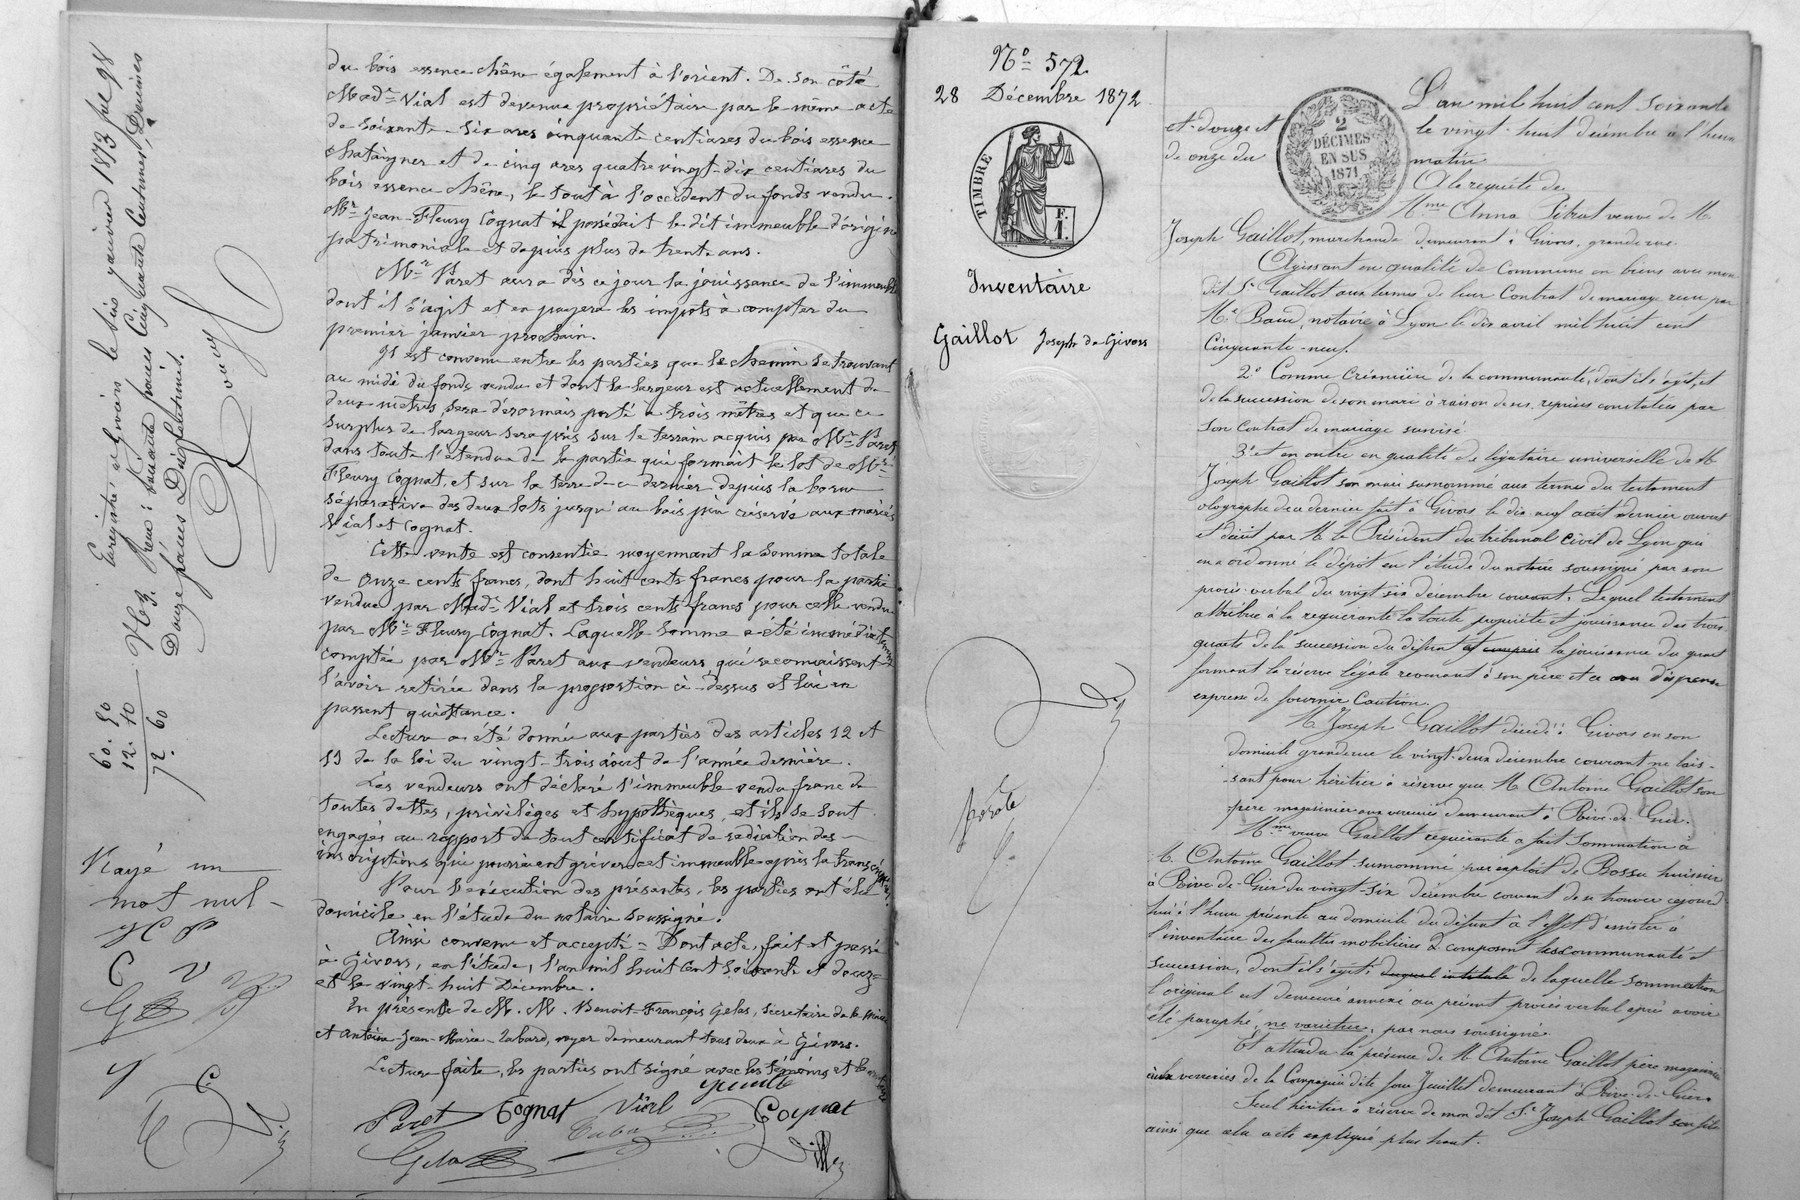 du bois essence chêne également à l'orient. De son côté
Made Vial est devenue propriétaire par le même acte
de soixante-six ares cinquante centiares du bois essence
chataigner et de cinq ares quatre vingt-dix centiares du
bois essence chêne, le tout à l'occident du fonds vendu.
Mr Jean-Fleury Cognat possédait le dit immeuble d'origine
patrimoniale et depuis plus de trente ans.
Mr Paret aura dès ce jour la jouissance de l'immeuble
dont il s'agit et en payera les impôts à compter du
premier janvier prochain.
Il est convenu entre les parties que le chemin se trouvant
au midi du fonds vendu et dont la largeur est actuellement de
deux mètres, sera désormais porté à trois mètres et que ce
surplus de largeur sera pris sur le terrain acquis par Mr Paret
dans toute l'étendue de la partie qui formait le lot de Mr
Fleury Cognat, et sur la terre de ce dernier depuis la borne
séparative des deux lots jusqu'au bois pin réservé aux mariés
Vial et Cognat.
Cette vente est consentie moyennant la somme totale
de onze cents francs, dont huit cents francs pour la partie
vendue par Made Vial et trois cents francs pour celle vendue
par Mr Fleury Cognat. Laquelle somme a été immédiatement
comptée par Mr Paret aux vendeurs qui reconnaissent
l'avoir retirée dans la proportion ci-dessus et lui en
passent quittance.
Lecture a été donnée aux parties des articles 12 et
13 de la loi du vingt-trois août de l'année dernière.
Les vendeurs ont déclaré l'immeuble vendu franc de
toutes dettes, privilèges et hypothèques, et ils se sont
engagés au rapport de tout certificat de radiation des
inscriptions qui pourraient grever cet immeuble après la transcription.
Pour l'exécution des présentes, les parties ont élu
domicile en l'étude du notaire soussigné.
Ainsi convenu et accepté = Dont acte, fait et passé
à Givors, en l'étude, l'an mil huit cent soixante et douze
et le vingt-huit Décembre.
En présence de M. M. Benoit-François Gelas, secrétaire de la Mairie
et Antoine-Jean-Marie Tabard, voyer demeurant tous deux à Givors.
Lecture faite, les parties ont signé avec les témoins et le notaire
Paret Cognat Vial Cognat
Gelas
Enregistré à Givors le six janvier 1873 fol 98
Reçu: soixante francs Cinquante Centimes, Décimes
Douze francs Dix centimes.
60. 50
12. 10
72. 60
Rayé un
mot nul
No 572
28 Décembre 1872
TIMBRE
F.
1.
Inventaire
Gaillot Joseph de Givors
2
DÉCIMES
EN SUS
1871
L'an mil huit cent soixante
et douze et le vingt-huit décembre à l'heure
de onze du matin
A la requête de
Mme Anna Pitrat veuve de M.
Joseph Gaillot, marchande demeurant à Givors, grande rue
Agissant en qualité de commune en biens avec mon
dit Sr Gaillot aux termes de leur contrat de mariage reçu par
Me Baud, notaire à Lyon le dix avril mil huit cent
cinquante-neuf.
2o Comme créancière de la communauté, dont il s'agit, et
de la succession de son mari à raison de ses reprises constatées par
son contrat de mariage susvisé.
3o et en outre en qualité de légataire universelle de M.
Joseph Gaillot son mari susnommé aux termes du testament
olographe de ce dernier fait à Givors le dix août dernier ouvert
et décrit par M. le Président du tribunal civil de Lyon qui
en a ordonné le dépôt en l'étude du notaire soussigné par son
procès-verbal du vingt six décembre courant. Lequel testament
attribue à la requérante la toute propriété et jouissance des trois
quarts de la succession du défunt et compris la jouissance du quart
formant la réserve légale revenant à son père et ce avec dispense
expresse de fournir caution.
M. Joseph Gaillot décédé à Givors en son
domicile grande rue le vingt-deux décembre courant ne lais-
sant pour héritier à réserve que M. Antoine Gaillot son
père magasinier aux verreries demeurant à Rive-de-Gier.
Mme veuve Gaillot requérante a fait sommation à
M. Antoine Gaillot susnommé par exploit de Bossu huissier
à Rive-de-Gier du vingt-six décembre courant de se trouver cejourd
hui à l'heure présente au domicile du défunt à l'effet d'assister à
l'inventaire des facultés mobilières composant les communauté et
succession, dont il s'agit; de laquelle sommation
l'original est demeuré annexé au présent procès verbal après avoir
été paraphé, ne varietur, par nous soussigné.
Et attendu la présence de M. Antoine Gaillot père magasinier
aux verreries de la Compagnie dite four Jeuillet demeurant à Rive-de-Gier
Seul héritier à réserve de mon dit Sr Joseph Gaillot son fils
ainsi que cela a été expliqué plus haut.